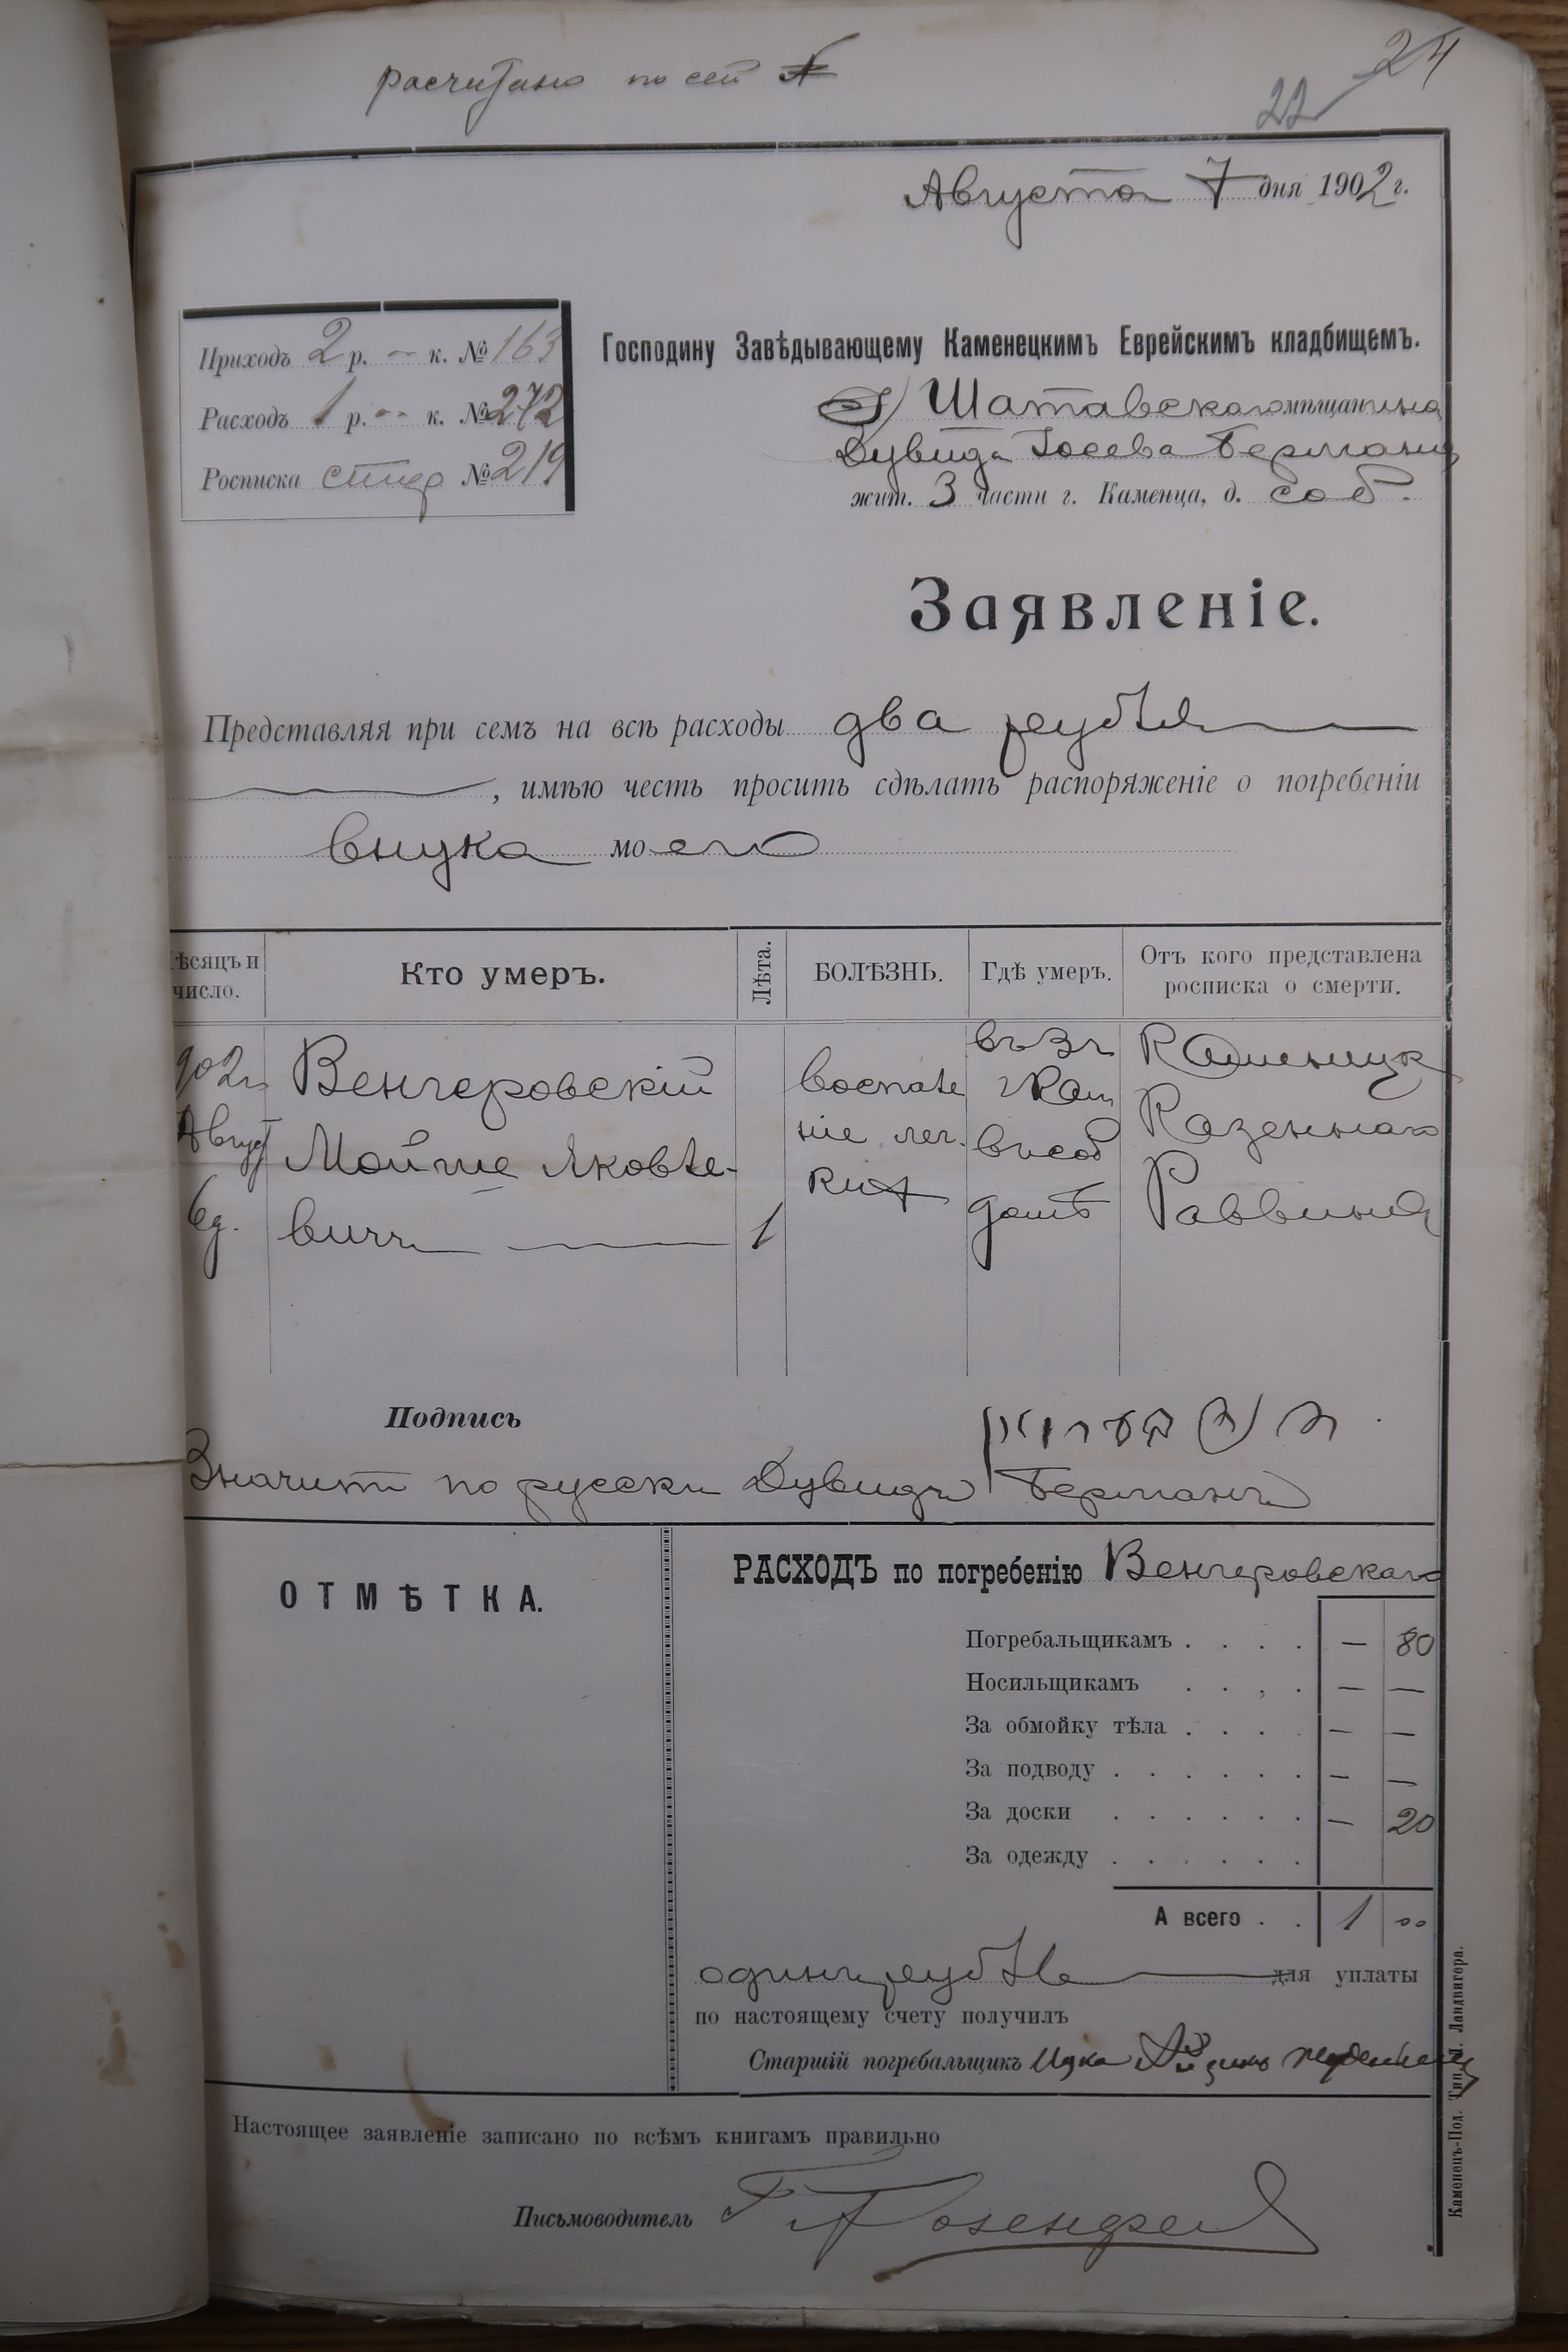 расчитано по сей №
22 24
Августа 7 дня 1902 г.
Приходъ 2 р. – к. № 163
Расходъ 1 р. -- к. № 272
Росписка № 219
Господину Завѣдывающему Каменецкимъ Еврейскимъ кладбищемъ.
Шатавскаго мѣщанина
Дувида Іосева Бермана
жит. 3 части г. Каменца, д. соб.
Заявленіе.
Представляя при семъ на всѣ расходы два рубля
, имѣю честь просить сдѣлать распоряженіе о погребеніи
внука моего
Мѣсяцъ и число. Кто умеръ. Лѣта. БОЛѢЗНЬ. Гдѣ умеръ. Отъ кого представлена росписка о смерти.
902г Венгеровскій воспале въ 3ч Каменецк
Август Мойше Яковле- ніе лег. г Кам Казеннаго
6д. вичъ 1 кихъ въ соб домѣ Раввина
Подпись
Значитъ по русски Дувидъ Берманъ
ОТМѢТКА.
РАСХОДЪ по погребенію Венгеровскаго
Погребальщикамъ . . . . — 80
Носильщикамъ . . , . — —
За обмойку тѣла . . . . — —
За подводу . . . . . . — —
За доски . . . . . . — 20
За одежду . . . . . .
А всего . . 1 ..
одинъ рубль для уплаты
по настоящему счету получилъ
Старшій погребальщикъ Ицка
Настоящее заявленіе записано по всѣмъ книгамъ правильно
Письмоводитель Розенфел
Каменецъ-Под. Тип. Л. Ландвигера.